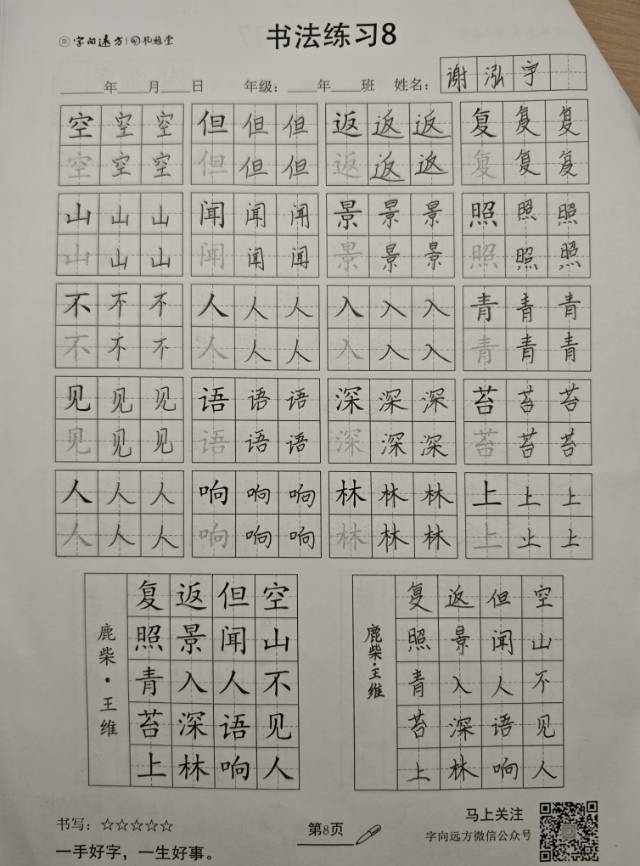 字向远方 孔雅堂
书法练习8
____年____月____日 年级：____年____班 姓名：谢泓宇
空空空 但但但 返返返 复复复
空空空 但但但 返返返 复复复
山山山 闻闻闻 景景景 照照照
山山山 闻闻闻 景景景 照照照
不不不 人人人 入入入 青青青
不不不 人人人 入入入 青青青
见见见 语语语 深深深 苔苔苔
见见见 语语语 深深深 苔苔苔
人人人 响响响 林林林 上上上
人人人 响响响 林林林 上上上
空山不见人
但闻人语响
返景入深林
复照青苔上
鹿柴·王维
空山不见人
但闻人语响
返景入深林
复照青苔上
鹿柴·王维
书写：☆☆☆☆☆
一手好字，一生好事。
第8页
马上关注
字向远方微信公众号